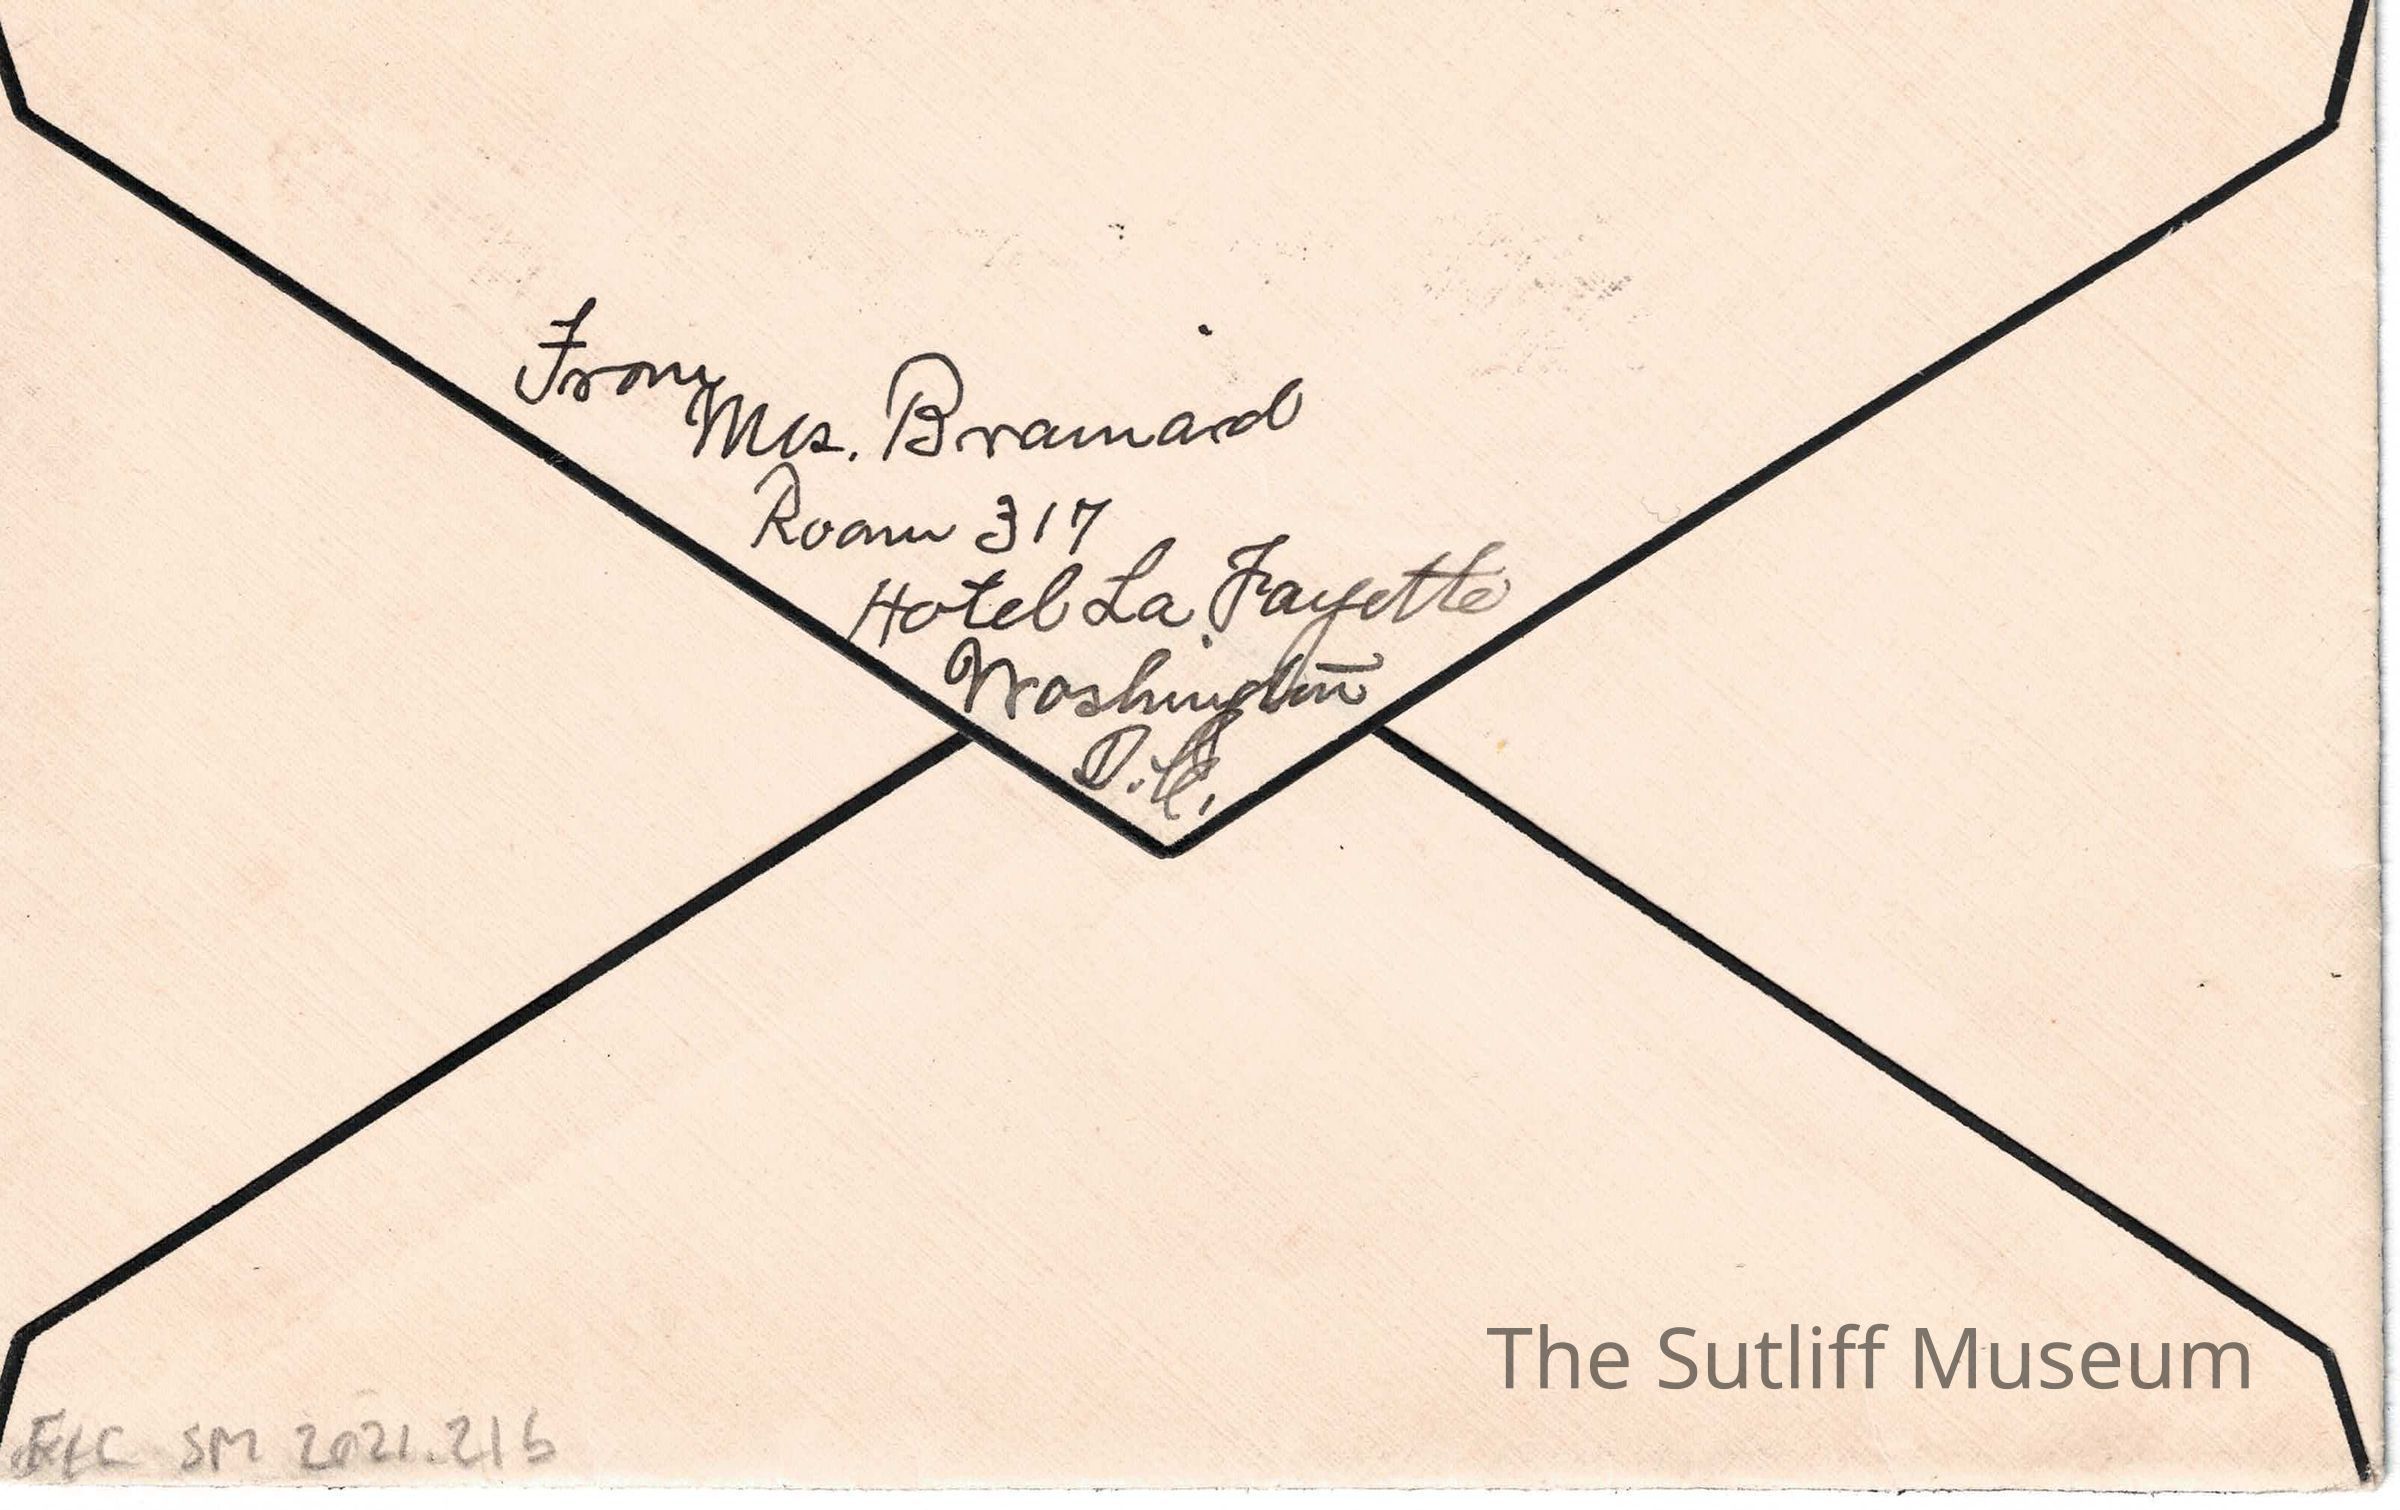 From
Mrs. Brainard
Room 317
Hotel La Fayette
Washington
D.C.
The Sutliff Museum
SM 2021.21b